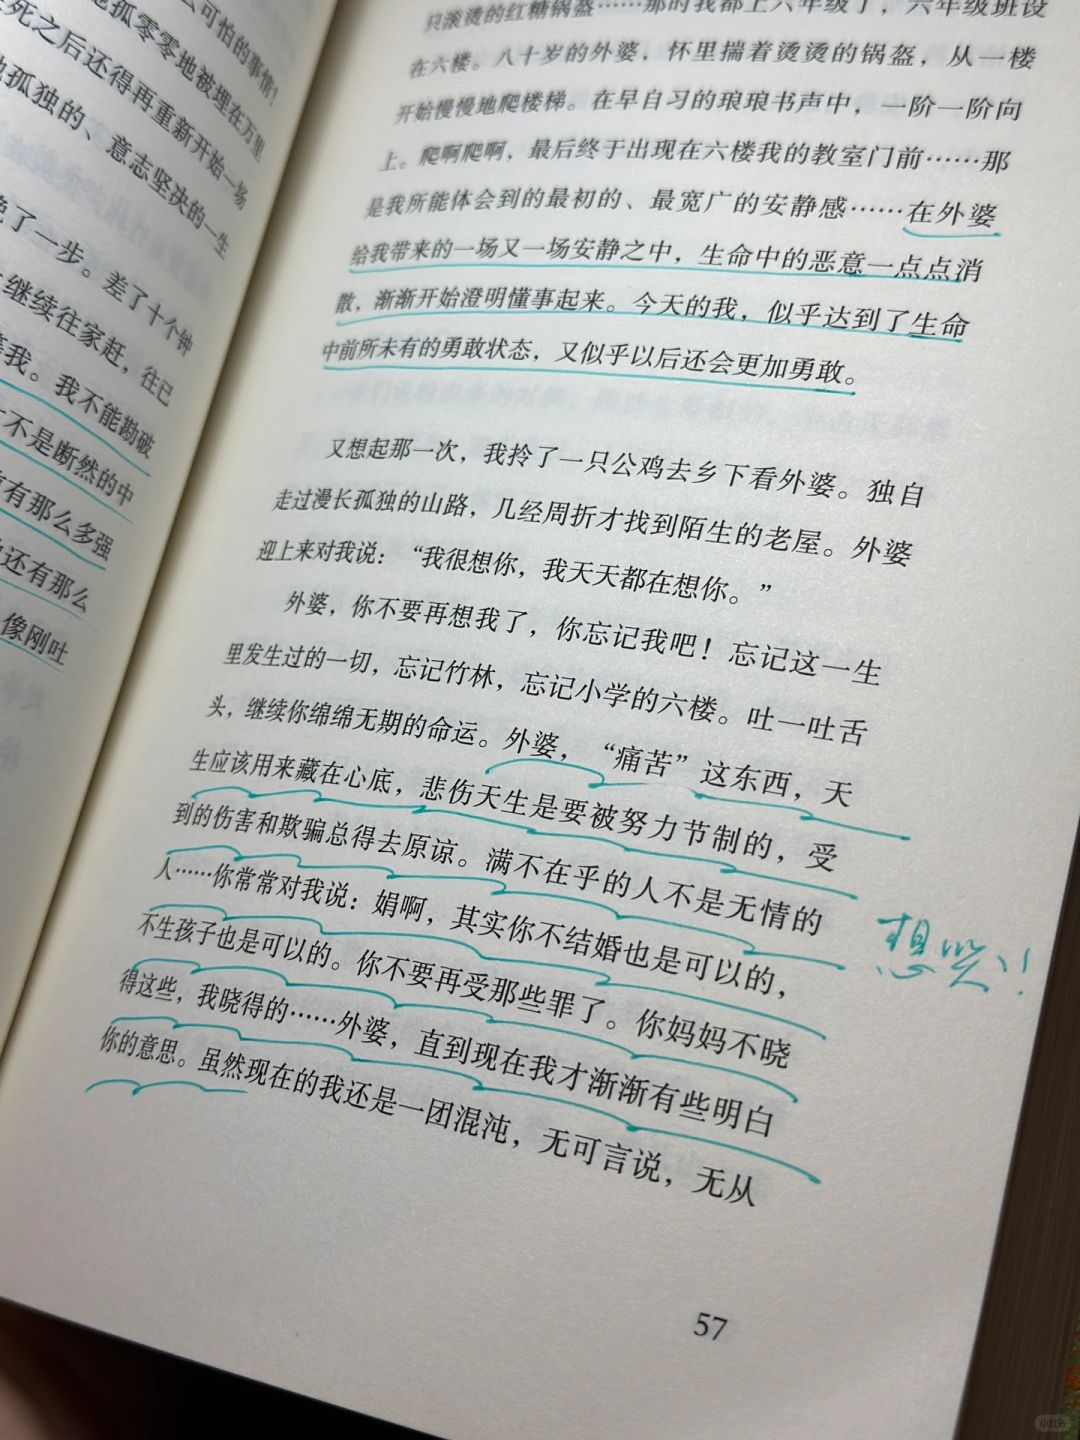 么可怕的事情！
死之后还得再重新开始一场
孤零零地被埋在万里
孤独的、意志坚决的一生
晚了一步。差了十个钟
继续往家赶，往已
等我。我不能勘破
不是断然的中
有那么多强
还有那么
像刚吐
只滚烫的红糖锅盔……那时我都上六年级了，六年级班设
在六楼。八十岁的外婆，怀里揣着烫烫的锅盔，从一楼
开始慢慢地爬楼梯。在早自习的琅琅书声中，一阶一阶向
上。爬啊爬啊，最后终于出现在六楼我的教室门前……那
是我所能体会到的最初的、最宽广的安静感……在外婆
给我带来的一场又一场安静之中，生命中的恶意一点点消
散，渐渐开始澄明懂事起来。今天的我，似乎达到了生命
中前所未有的勇敢状态，又似乎以后还会更加勇敢。
又想起那一次，我拎了一只公鸡去乡下看外婆。独自
走过漫长孤独的山路，几经周折才找到陌生的老屋。外婆
迎上来对我说：“我很想你，我天天都在想你。”
外婆，你不要再想我了，你忘记我吧！忘记这一生
里发生过的一切，忘记竹林，忘记小学的六楼。吐一吐舌
头，继续你绵绵无期的命运。外婆，“痛苦”这东西，天
生应该用来藏在心底，悲伤天生是要被努力节制的，受
到的伤害和欺骗总得去原谅。满不在乎的人不是无情的
人……你常常对我说：娟啊，其实你不结婚也是可以的，
不生孩子也是可以的。你不要再受那些罪了。你妈妈不晓
得这些，我晓得的……外婆，直到现在我才渐渐有些明白
你的意思。虽然现在的我还是一团混沌，无可言说，无从
想哭！！
57
小红书